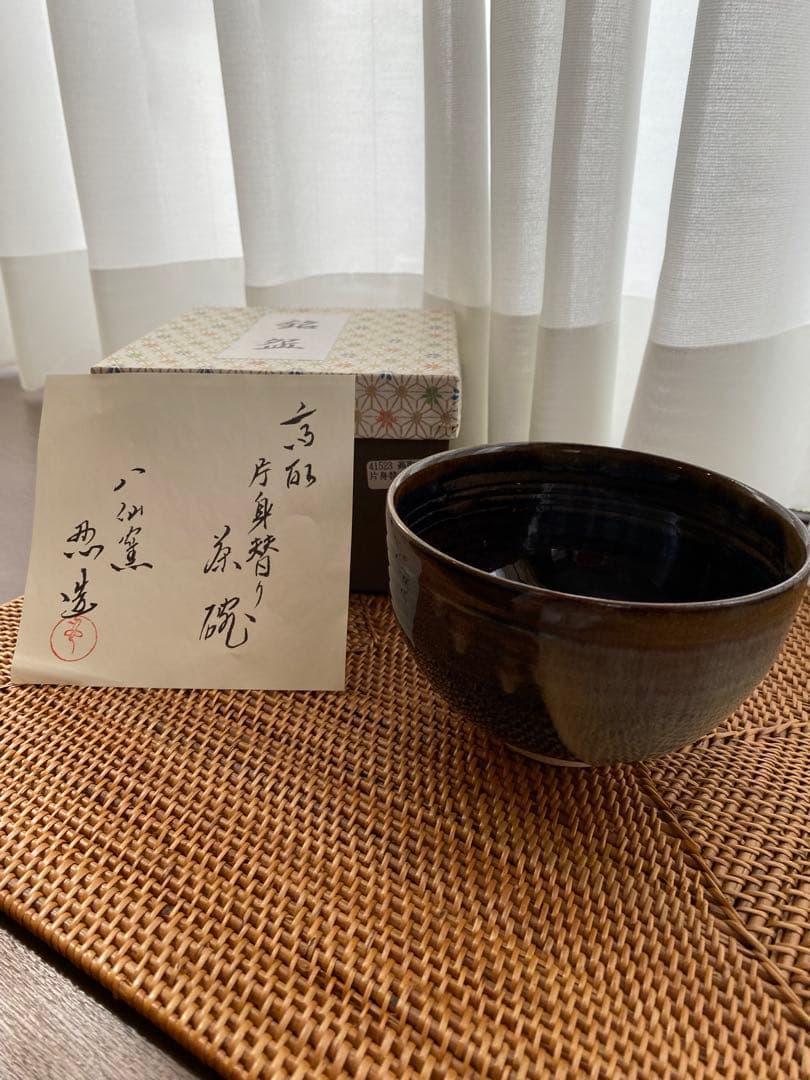 銘盌
高取
片身替り
茶碗
八仙窯
忍造
41523
片身替